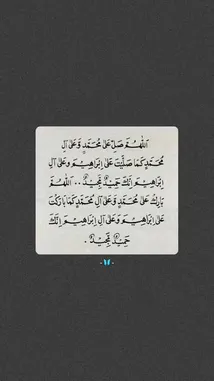 اللَّهُمَّ صَلِّ عَلَىٰ مُحَمَّدٍ وَعَلَىٰ آلِ
مُحَمَّدٍ كَمَا صَلَّيْتَ عَلَىٰ إِبْرَاهِيمَ وَعَلَىٰ آلِ
إِبْرَاهِيمَ إِنَّكَ حَمِيدٌ مَجِيدٌ .. اللَّهُمَّ
بَارِكْ عَلَىٰ مُحَمَّدٍ وَعَلَىٰ آلِ مُحَمَّدٍ كَمَا بَارَكْتَ
عَلَىٰ إِبْرَاهِيمَ وَعَلَىٰ آلِ إِبْرَاهِيمَ إِنَّكَ
حَمِيدٌ مَجِيدٌ .